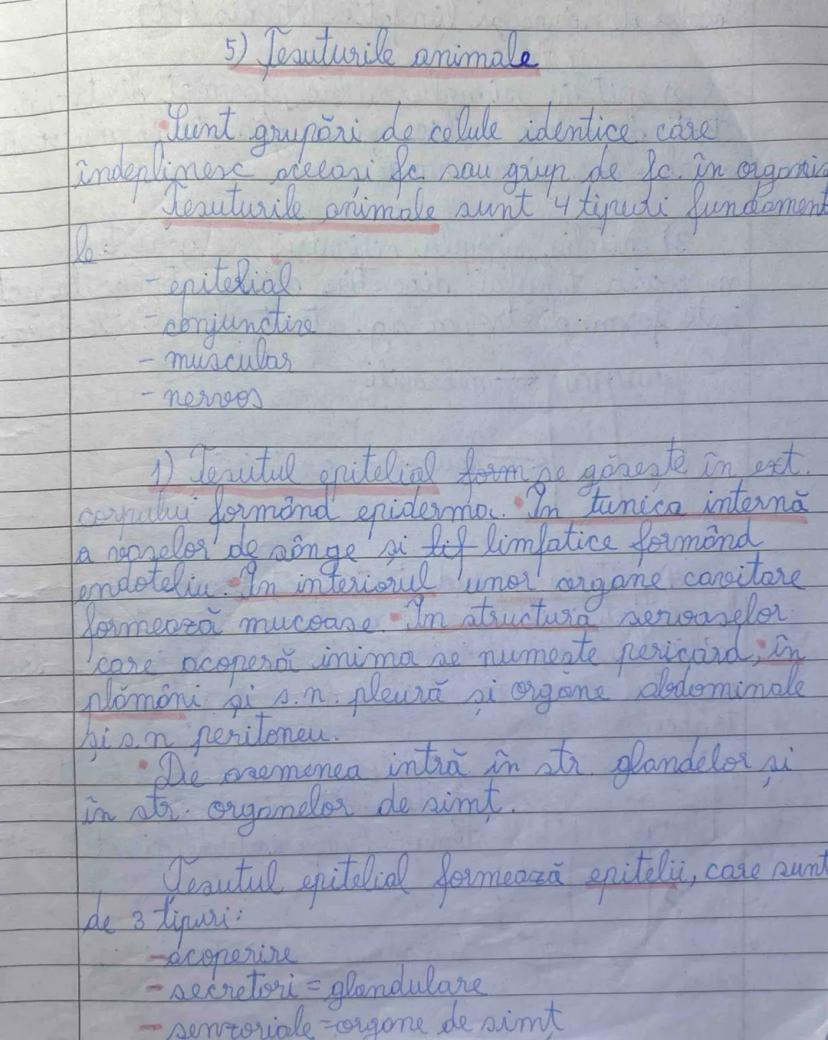 5) Țesuturile animale
Sunt grupări de celule identice care
îndeplinesc aceeași fc. sau grup de fc. în organis
Țesuturile animale sunt 4 tipuri fundament
le
- epitelial
- conjunctive
- muscular
- nervos
1) Țesutul epitelial form se găsește în ext.
corpului formând epiderma. În tunica internă
a vaselor de sânge și limfatice formând
endoteliu. În interiorul unor organe cavitare
formează mucoase. În structura seroaselor
care acoperă inima se numește pericard, în
plămâni și s.n. pleură și organe abdominale
și s.n peritoneu.
De asemenea intră în str. glandelor și
în str. organelor de simț.
Țesutul epitelial formează epitelii, care sunt
de 3 tipuri:
- acoperire
- secretori = glandulare
- senzoriale = organe de simț